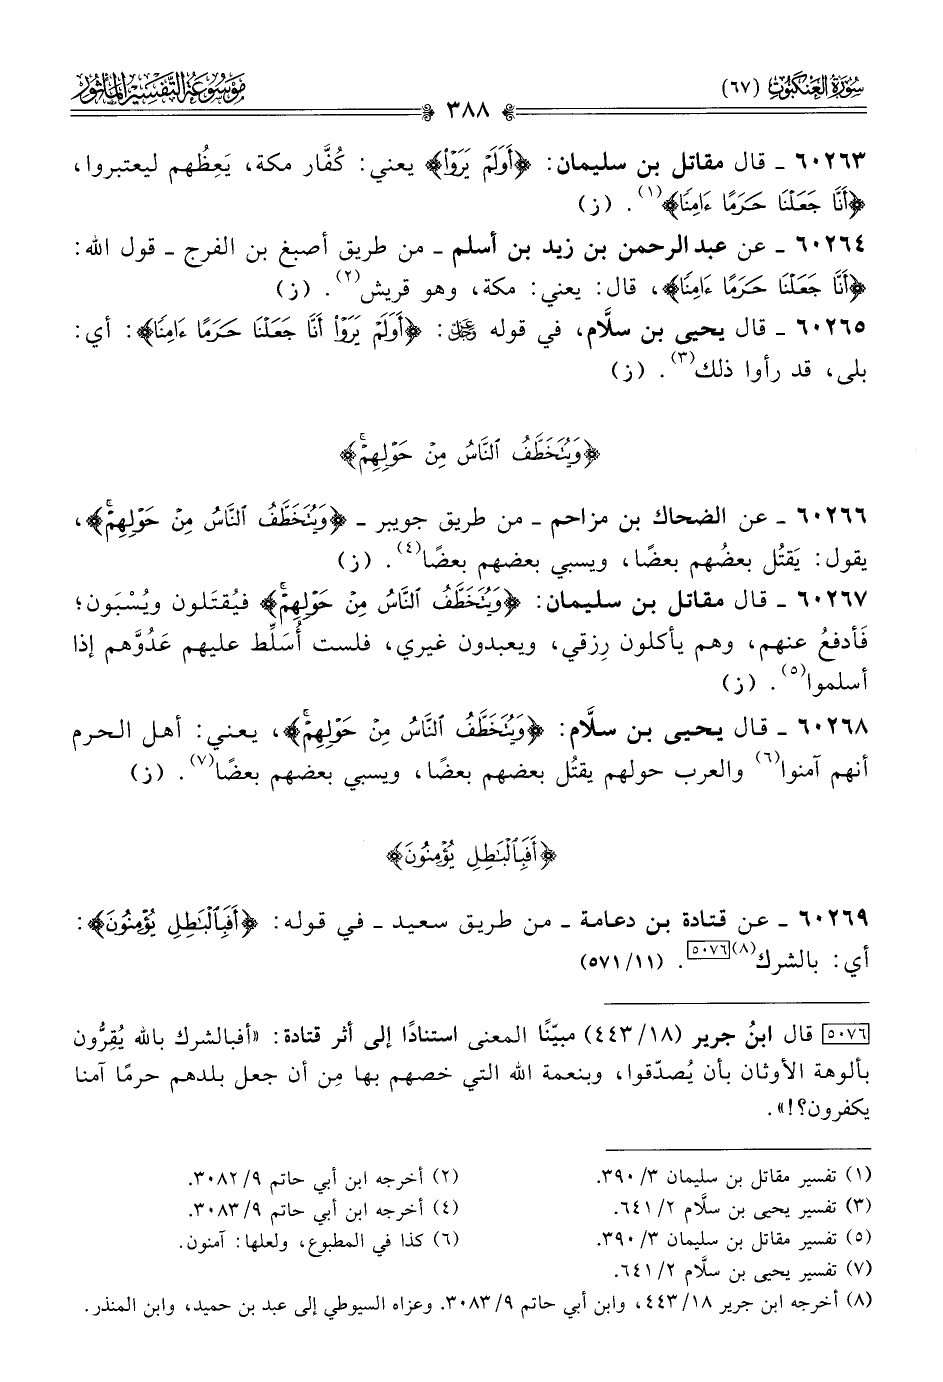 سُورَةُ العَنْكَبُوتِ (٦٧)
٣٨٨
مَوْسُوعَةُ التَّفْسِيرِ المَأْثُورِ
٦٠٢٦٣ ـ قال مقاتل بن سليمان: ﴿أَوَلَمْ يَرَوْا﴾ يعني: كُفَّار مكة، يَعِظُهم ليعتبروا،
﴿أَنَّا جَعَلْنَا حَرَمًا ءَامِنًا﴾(١). (ز)
٦٠٢٦٤ ـ عن عبد الرحمن بن زيد بن أسلم ـ من طريق أصبغ بن الفرج ـ قول الله:
﴿أَنَّا جَعَلْنَا حَرَمًا ءَامِنًا﴾، قال: يعني: مكة، وهو قريش(٢). (ز)
٦٠٢٦٥ ـ قال يحيى بن سلَّام، في قوله ﷿: ﴿أَوَلَمْ يَرَوْا أَنَّا جَعَلْنَا حَرَمًا ءَامِنًا﴾: أي:
بلى، قد رأوا ذلك(٣). (ز)
﴿وَيُتَخَطَّفُ ٱلنَّاسُ مِنْ حَوْلِهِمْۚ﴾
٦٠٢٦٦ ـ عن الضحاك بن مزاحم ـ من طريق جويبر ـ ﴿وَيُتَخَطَّفُ ٱلنَّاسُ مِنْ حَوْلِهِمْۚ﴾،
يقول: يَقتُل بعضُهم بعضًا، ويسبي بعضهم بعضًا(٤). (ز)
٦٠٢٦٧ ـ قال مقاتل بن سليمان: ﴿وَيُتَخَطَّفُ ٱلنَّاسُ مِنْ حَوْلِهِمْۚ﴾ فيُقتَلون ويُسْبَون؛
فَأدفعُ عنهم، وهم يأكلون رِزقي، ويعبدون غيري، فلست أُسَلِّط عليهم عَدُوَّهم إذا
أسلموا(٥). (ز)
٦٠٢٦٨ ـ قال يحيى بن سلَّام: ﴿وَيُتَخَطَّفُ ٱلنَّاسُ مِنْ حَوْلِهِمْۚ﴾، يعني: أهل الحرم
أنهم آمنوا(٦) والعرب حولهم يقتُل بعضهم بعضًا، ويسبي بعضهم بعضًا(٧). (ز)
﴿أَفَبِٱلْبَٰطِلِ يُؤْمِنُونَ﴾
٦٠٢٦٩ ـ عن قتادة بن دعامة ـ من طريق سعيد ـ في قوله: ﴿أَفَبِٱلْبَٰطِلِ يُؤْمِنُونَ﴾:
أي: بالشرك(٨)٥٠٧٦. (١١/ ٥٧١)
٥٠٧٦ قال ابنُ جرير (١٨/ ٤٤٣) مبيّنًا المعنى استنادًا إلى أثر قتادة: «أفبالشرك بالله يُقِرُّون
بألوهة الأوثان بأن يُصدّقوا، وبنعمة الله التي خصهم بها مِن أن جعل بلدهم حرمًا آمنا
يكفرون؟!».
(١) تفسير مقاتل بن سليمان ٣/ ٣٩٠.
(٢) أخرجه ابن أبي حاتم ٩/ ٣٠٨٢.
(٣) تفسير يحيى بن سلَّام ٢/ ٦٤١.
(٤) أخرجه ابن أبي حاتم ٩/ ٣٠٨٣.
(٥) تفسير مقاتل بن سليمان ٣/ ٣٩٠.
(٦) كذا في المطبوع، ولعلها: آمنون.
(٧) تفسير يحيى بن سلَّام ٢/ ٦٤١.
(٨) أخرجه ابن جرير ١٨/ ٤٤٣، وابن أبي حاتم ٩/ ٣٠٨٣. وعزاه السيوطي إلى عبد بن حميد، وابن المنذر.